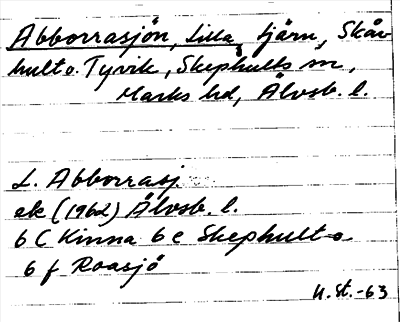 Abborrasjön, Lilla, tjärn, Skåv
hult o. Tyvik, Skephults sn,
Marks hd, Älvsb. l.
L. Abborrasj.
ek (1962) Älvsb. l.
6 C Kinna 6 e Skephult-o
6 f Roasjö
U. St. -63